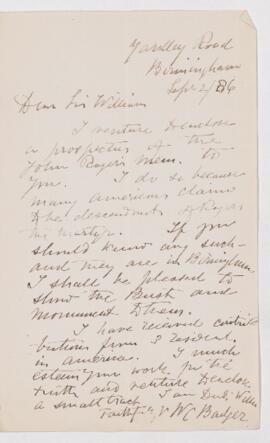 Yardley Road
Birmingham
Sept 2/86
Dear Sir William
I venture to enclose
a prospectus of the
John Rogers Mem. to
you. I do so because
many americans claim
to be descendants of Rogers
the martyr. If you
should know any such
and they are in Birmingham
I shall be pleased to
show the Bust and
monument to them.
I have received contri
butions from 3 resident
in america. I much
esteem your work for the
truth and venture to enclose
a small tract I am Dear Sir William
faithfully yrs W C Badger